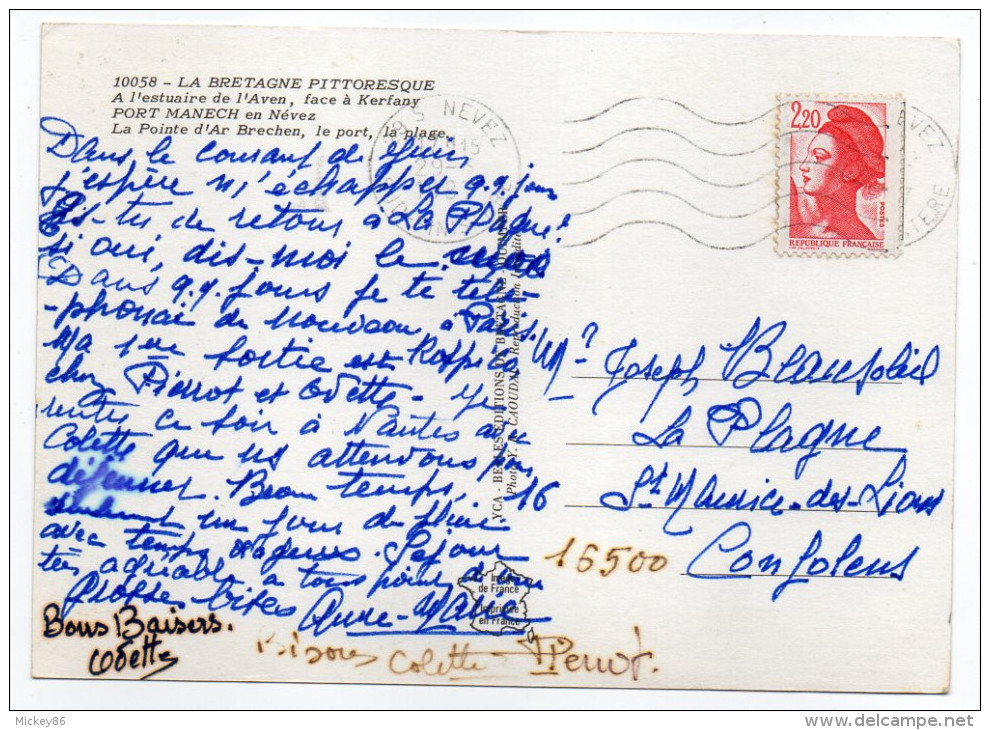 10058 - LA BRETAGNE PITTORESQUE
A l'estuaire de l'Aven, face à Kerfany
PORT MANECH en Névez
La Pointe d'Ar Brechen, le port, la plage.
NEVEZ
29
FINISTERE
2,20
POSTES
REPUBLIQUE FRANÇAISE
Dans le courant de Juin
j'espère m'échapper q.q. jours
Es-tu de retour à La Plagne?
si oui, dis-moi le
Dans q.q. jours je te télé-
-phonai de nouveau à Paris.
Ma 1ère sortie est
chez Pierrot et Odette - Je
rentre ce soir à Nantes avec
Colette que ns attendons pour
déjeuner. Beau temps,
seulement un jour de pluie
avec temps orageux. Séjour
très agréable à tous points de vue
Grosses bises Anne-Marie
Bons Baisers.
Odette
Bisous Colette Pierrot.
YCA - BELLES EDITIONS DE BRETAGNE -
Photo Y. R. CAOUDAL Reproduction Interdite
Image
de France
Imprimée
en France
Mr Joseph Beausoleil
La Plagne
16 St Maurice-des-Lions
16500 Confolens
Mickey86
delcampe.net